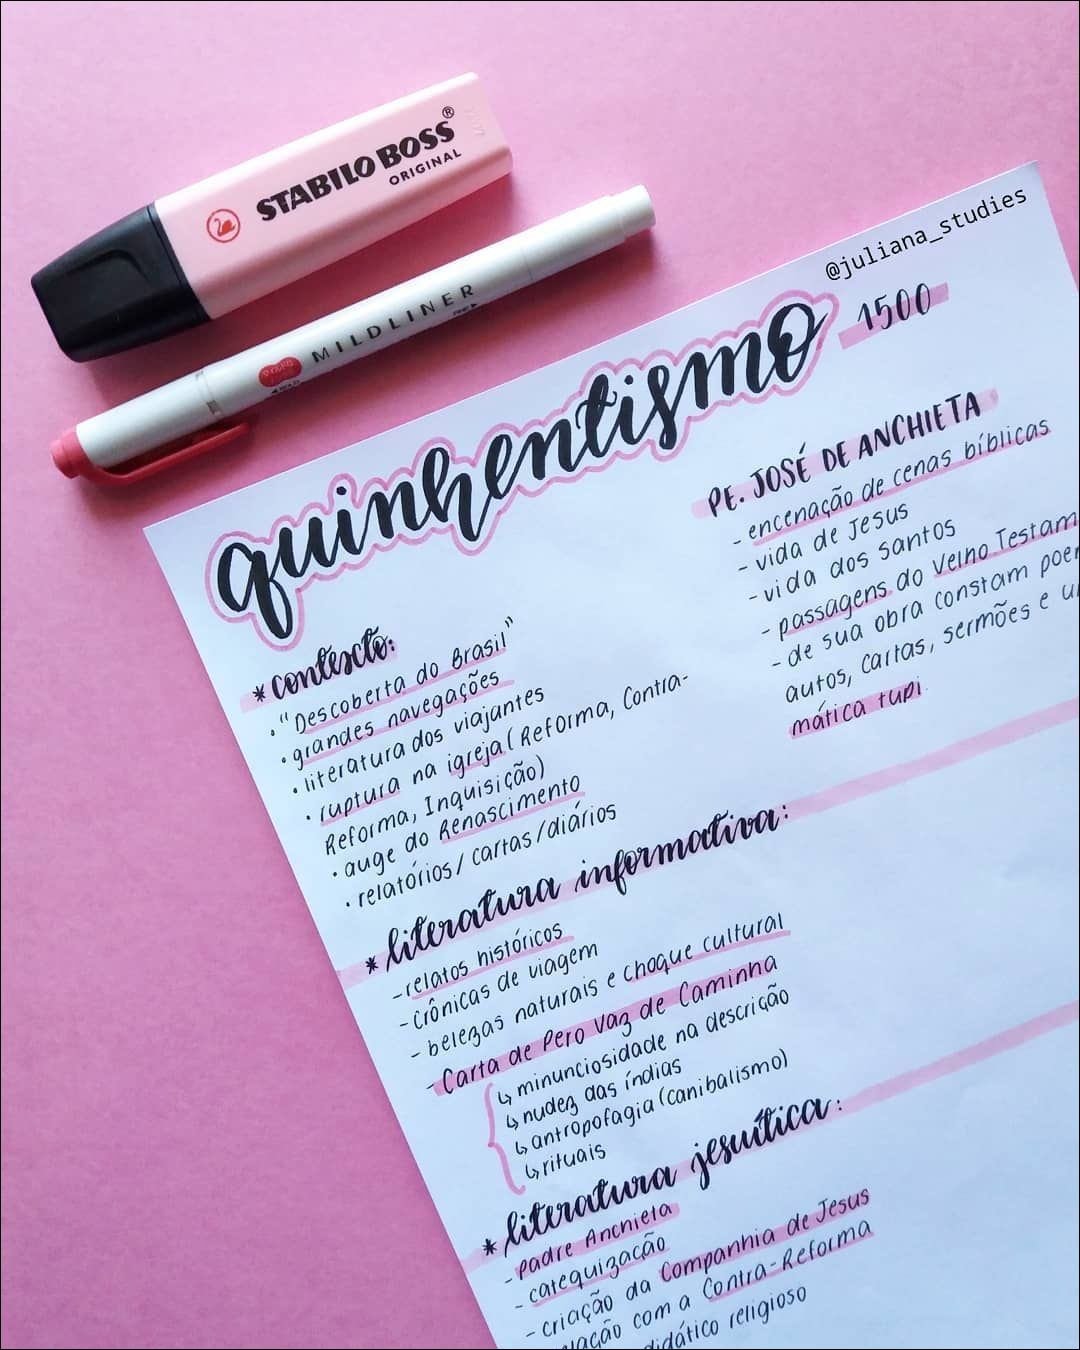 STABILO BOSS®
ORIGINAL
MILDLINER
@juliana_studies
quinhentismo 1500
* contexto:
• "Descoberta do Brasil"
• grandes navegações
• literatura dos viajantes
• ruptura na igreja (Reforma, Contra-
Reforma, Inquisição)
• auge do Renascimento
• relatórios/cartas/diários
PE. JOSÉ DE ANCHIETA
- encenação de cenas bíblicas
- vida de Jesus
- vida dos santos
- passagens do Velho Testam
- de sua obra constam poe
autos, cartas, sermões e u
mática tupi.
* literatura informativa:
- relatos históricos
- crônicas de viagem
- belezas naturais e choque cultural
- Carta de Pero Vaz de Caminha
↳ minunciosidade na descrição
↳ nudez das índias
↳ antropofagia (canibalismo)
↳ rituais
* literatura jesuítica:
- padre Anchieta
- catequização
- criação da Companhia de Jesus
com a Contra-Reforma
didático religioso